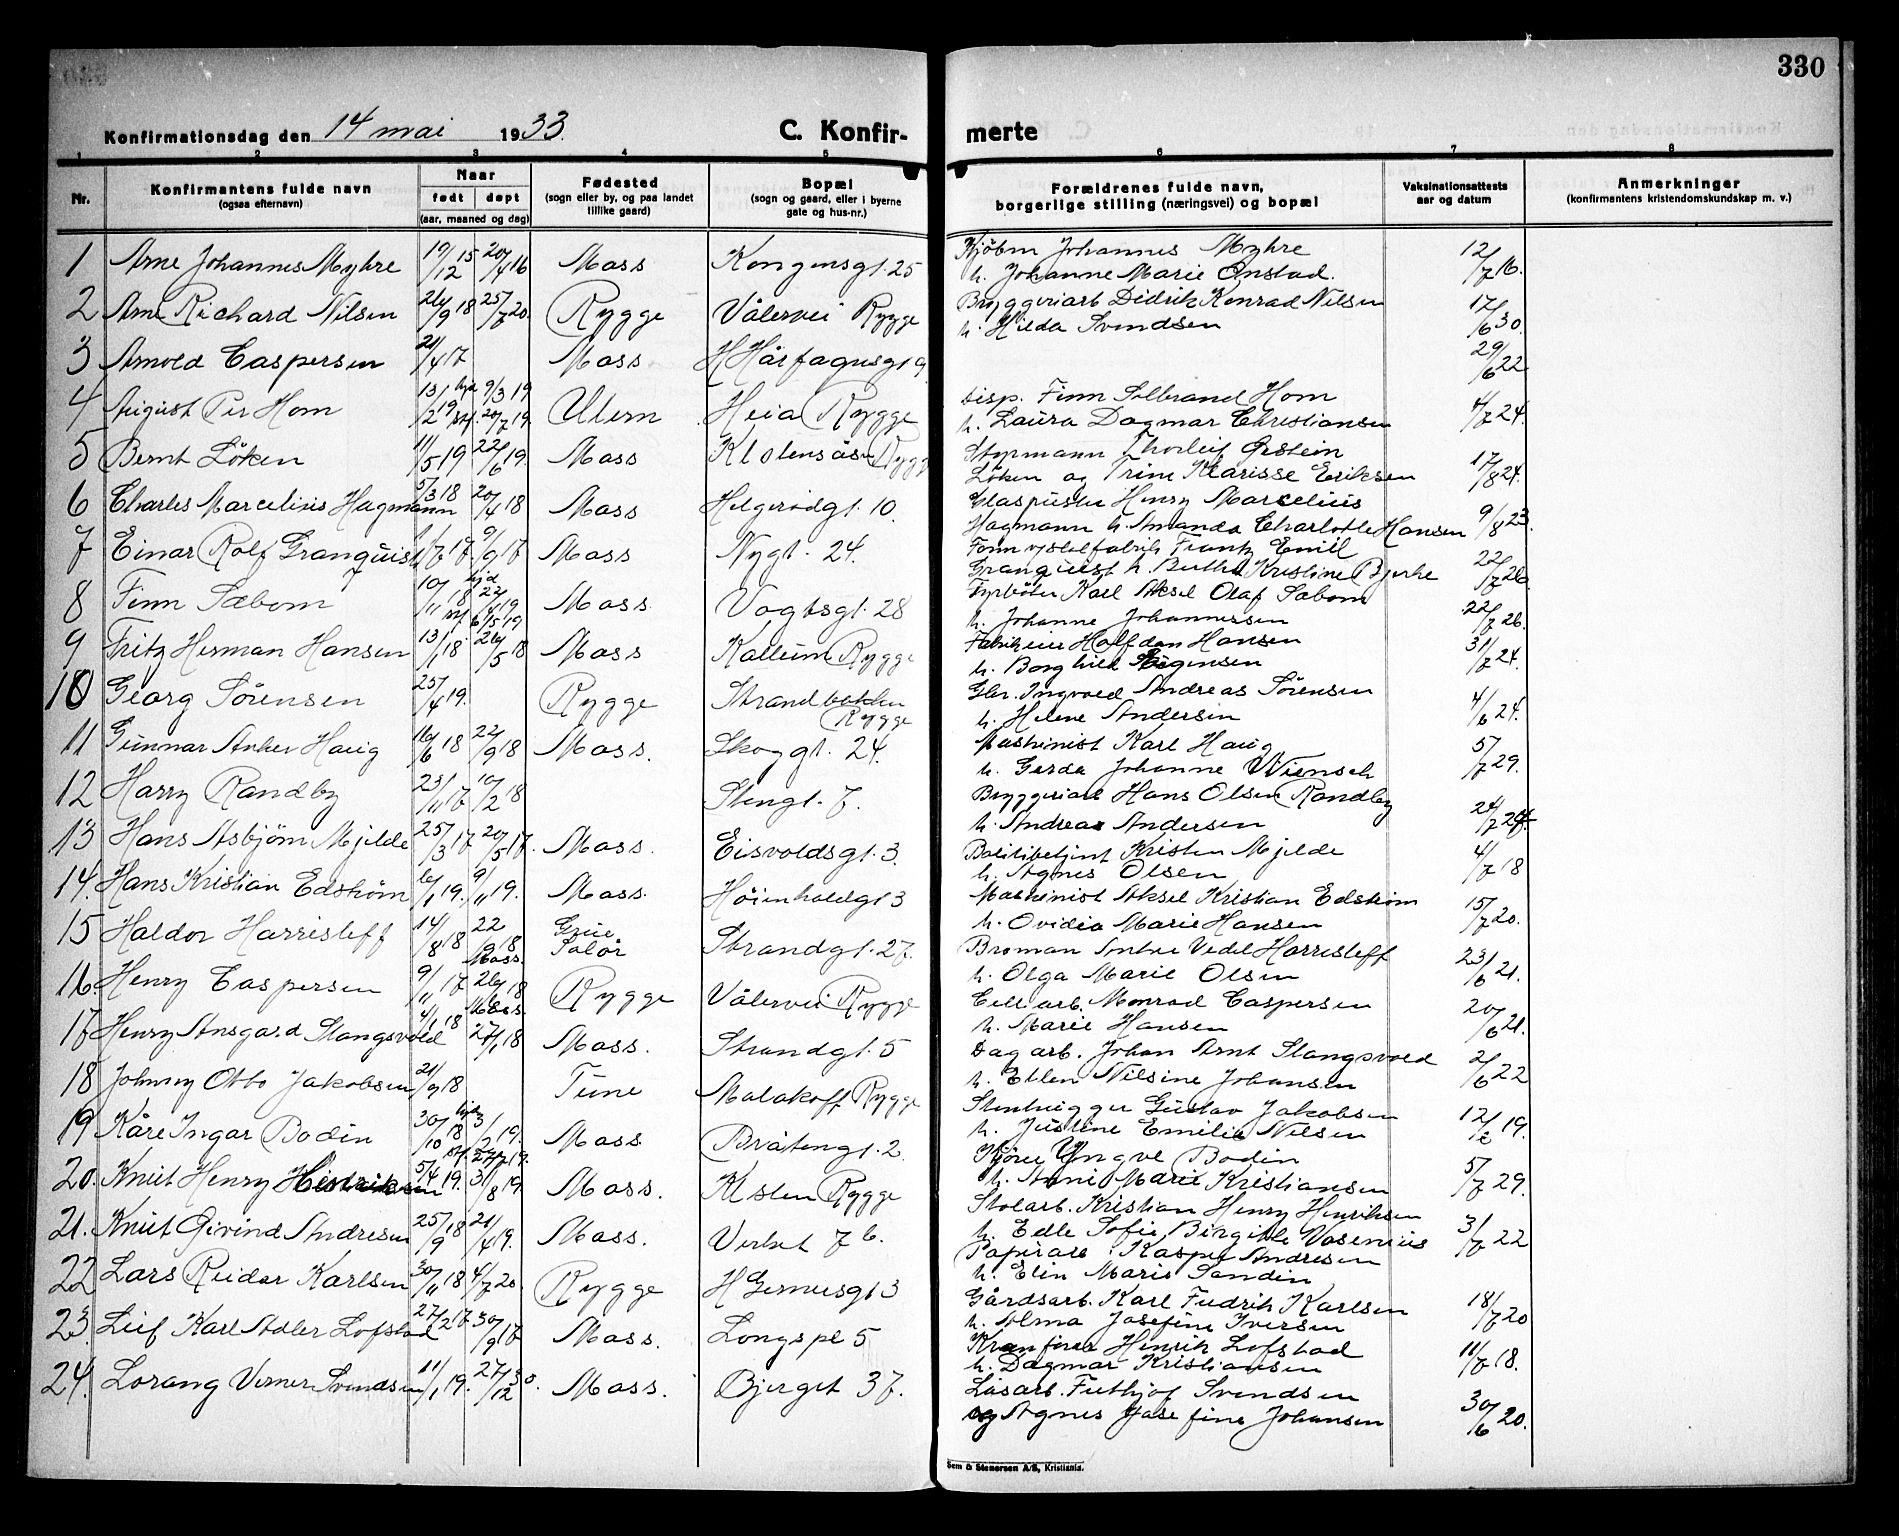 330
Konfirmationsdag den 14 mai 1933.
C. Konfir-
merte
1 2 3 4 5 6 7 8
Nr.
Konfirmantens fulde navn
(ogsaa efternavn)
Naar
født døpt
(aar, maaned og dag)
Fødested
(sogn eller by, og paa landet
tillike gaard)
Bopæl
(sogn og gaard, eller i byerne
gate og hus-nr.)
Forældrenes fulde navn,
borgerlige stilling (næringsvei) og bopæl
Vaksinationsattests
aar og datum
Anmerkninger
(konfirmantens kristendomskundskap m. v.)
1 Arne Johannes Myhre 19/12 15 20/4 16 Moss Kongensgt. 25 Kjøbm Johannes Myhre 12/7 16.
h. Johanne Marie Onstad.
2 Arne Richard Nilsen 26/9 18 25/7 20. Rygge Vålervei Rygge Bryggeriarb Didrik Konrad Nilsen 17/6 30.
h. Hilda Svendsen
3 Arnold Caspersen 21/4 17 Moss H Hårfagresgt 9 29/6 22
4 August Per Hom 13/2 19 hjd 9/3 19 stf. 20/7 19. Ullern Heia Rygge Disp. Finn Solbrand Hom 4/7 24.
h. Laura Dagmar Christiansen
5 Bernt Löken 11/5 19 22/6 19. Moss Klolensåsen Rygge Styrmann Thorleif Ørstein 17/8 24.
Löken og Trine Klarisse Eriksen
6 Charles Marcelius Hagmann 5/3 18 20/4 18 Moss Helgerødgt. 10. Glaspuster Henry Marcelius 9/8 23.
Hagmann h. Amanda Charlotte Hansen
7 Einar Rolf Granquist 1/7 17. 9/9 17 Moss Nygt. 24. Frantz Emil 22/7 26
Granquist h. Berthe Kristine Bjerke
8 Finn Sæbom 10/11 18 hjd 22/4 19 stf 6/5 19 Moss Vogtsgt. 28 Fyrbøter Karl Aksel Olaf Sæbom 22/7 26.
h. Johanne Johannessen
9 Fritz Herman Hansen 13/1 18. 26/5 18 Moss Kallum Rygge Fabrikeier Halfdan Hansen 31/7 24.
h. Borghild Jörgensen
10 Georg Sörensen 25/4 19. Rygge Strandbakken Gbr. Ingvald Andreas Sörensen 4/6 24.
Rygge h. Helene Andersen
11 Gunnar Anker Haug 16/6 18 22/9 18 Moss. Skoggt. 24. Maskinist Karl Haug 5/7 29.
h. Gerda Johanne Wiensch
12 Harry Randby 23/11 17 10/2 18 Stengt. 7. Bryggeriarb Hans Olsen Randby 24/7 24.
h. Andrea Andersen
13 Hans Asbjørn Mjelde 25/3 17 20/5 17. Moss. Eisvoldsgt. 3. Politibetjent Kristen Mjelde 4/7 18
h. Agnes Olsen
14. Hans Kristian Edstrøm 6/1 19. 9/11 19. Moss. Høienhaldgt 3 Maskinist Aksel Kristian Edstrøm 15/7 20.
h. Ovidia Marie Hansen
15 Haldor Harrisleff 14/8 18 22/9 18 Grue Solør Strandgt. 27. Broman Anker Vedel Harrisleff 23/6 21.
h. Olga Marie Olsen
16. Henry Caspersen 9/11 17 Moss. 26/ 18 Rygge Vålervei Rygge Cell arb. Monrad Caspersen 20/6 21.
h. Marie Hansen
17 Henry Ansgard Stangsvold 4/1 18 Moss. 27/1 18 Moss. Strandgt. 5 Dag arb. Johan Arnt Stangsvold 2/6 22
h. Ellen Nilsine Johansen
18 Johnny Otto Jakobsen 21/9 18 Tune Malakoff Rygge Stenhugger Gustav Jakobsen 12/ 19.
h. Justine Emilie Nilsen
19 Kåre Ingar Bodin 30/10 18 hjd 3/2 19. stf. 27/7 19. Moss Bråtengt. 2. Kjører Yngve Bodin 5/7 29.
h. Anni Marie Kristiansen
20. Knut Henry Henriksen 5/4 19. 31/8 19 Moss. Klolen Rygge Stolarb. Kristian Henry Henriksen 3/7 22
h. Edle Sofie Birgitte Vosenius
21. Knut Øivind Andresen 25/9 18 21/4 19. Moss. Verket 76. Papirarb. Kasper Andresen
h. Elin Marie Sandin
22 Lars Reidar Karlsen 30/11 18 4/7 20. Rygge H Gernersgt 3 Gårdsarb. Karl Fredrik Karlsen 18/7 20
h. Alma Josefine Iversen
23. Leif Karl Adler Lofstad 27/2 17 30/9 17 Moss. Longspl 5 Kranfører Henrik Lofstad 11/7 18.
h. Dagmar Kristiansen
24. Lorang Verner Svendsen 11/1 19. 27/12 30. Moss. Bjerget 37. Låsarb. Frithjof Svendsen 30/6 20.
og Agnes Josefine Johansen
Sem & Stenersen A/S, Kristiania.